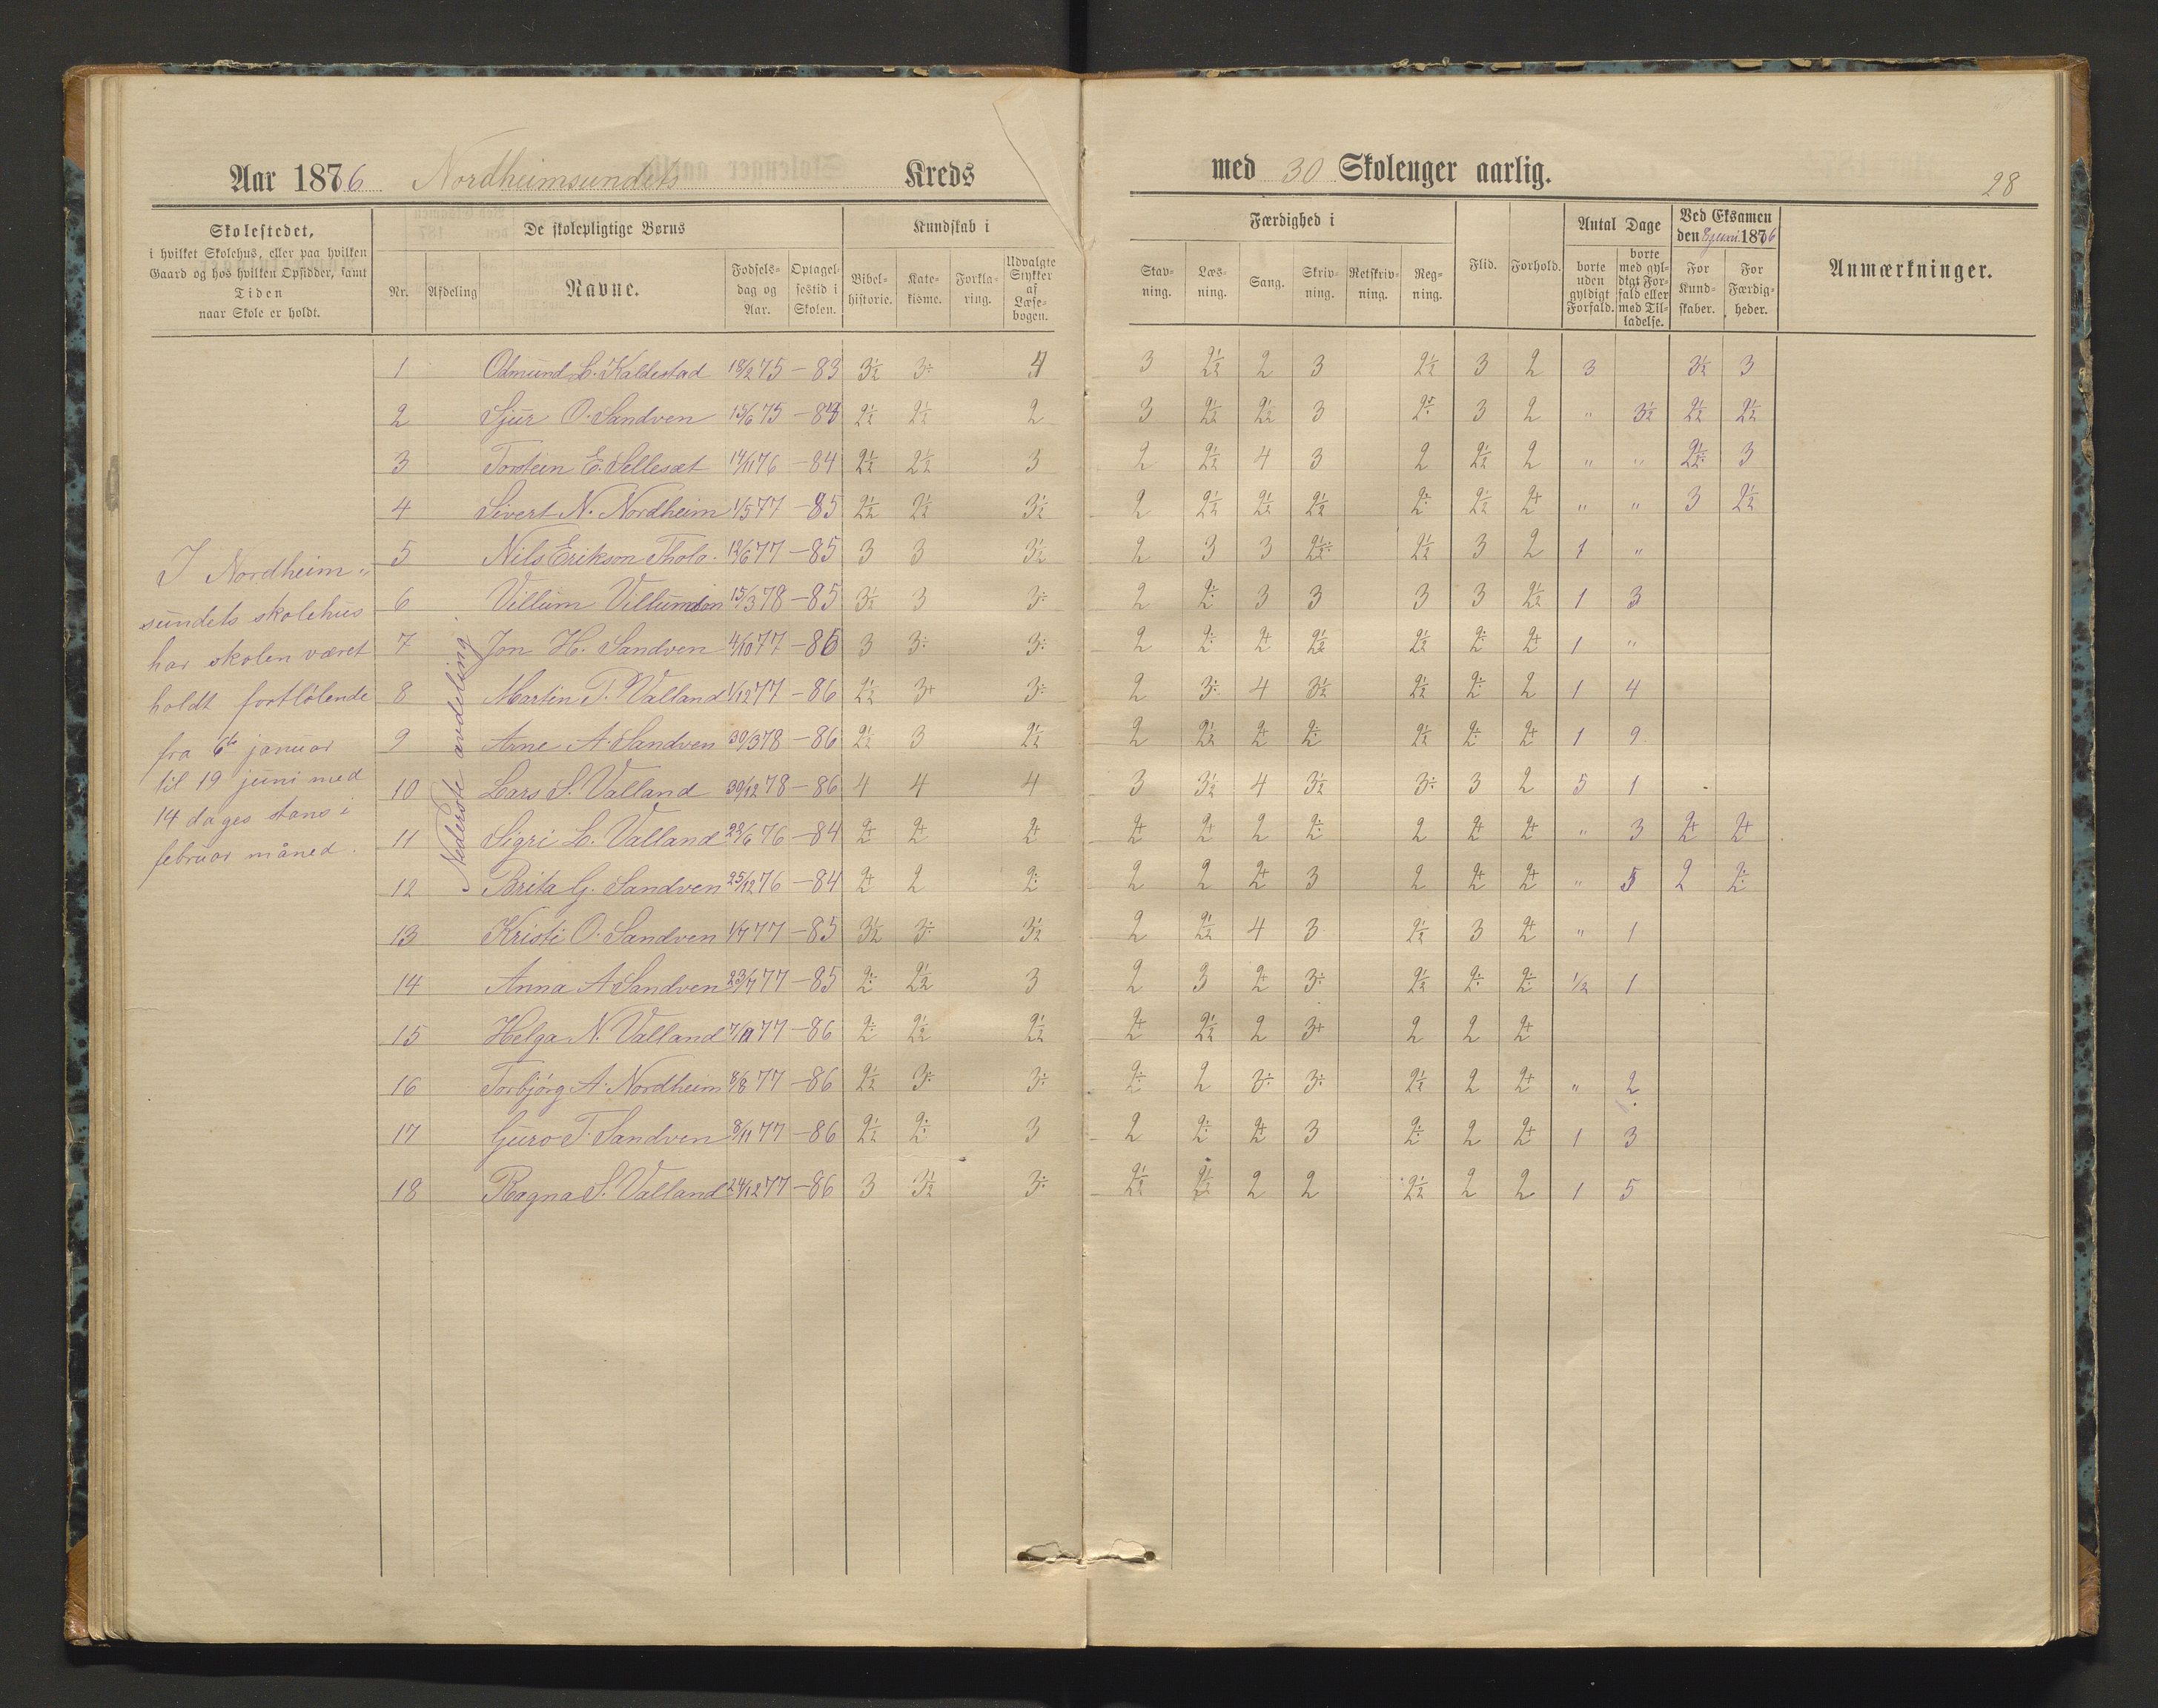 Aar 1876 Nordheimsundets Kreds
med 30 Skoleuger aarlig.
28
Skolestedet,
i hvilket Skolehus, eller paa hvilken
Gaard og hos hvilken Opsidder, samt
Tiden
naar Skole er holdt.
De skolepligtige Børns
Nr. Afdeling Navne. Fødsels-dag og Aar. Optagel-sestid i Skolen.
Kundskab i
Bibel-historie. Kate-kisme. Forkla-ring. Udvalgte Stykker af Læse-bogen.
Færdighed i
Stav-ning. Læs-ning. Sang. Skriv-ning. Retskriv-ning. Reg-ning.
Flid. Forhold.
Antal Dage
borte uden gyldigt Forfald. borte med gyl-digt For-fald eller med Til-ladelse.
Ved Eksamen
den 1876
For Kund-skaber. For Færdig-heder.
Anmærkninger.
I Nordheim-
sundets skolehus
har skolen været
holdt fortløbende
fra 6te januar
til 19 juni med
14 dages stans i
februar måned.
Nederste avdeling.
1 Odmund L. Kaldestad 18/2 75 –83 3½ 3÷ 4 3 2½ 2 3 2½ 3 2 3 3½ 3
2 Sjur O. Sandven 15/6 75 2½ 2½ 2 3 2½ 2½ 3 2÷ 3 2 " 3½ 2½ 2½
3 Torstein E. Sellesæt 14/11 76 –84 2½ 2½ 3 2 2½ 4 3 2 2½ 2 " " 2½÷ 3
4 Sivert N. Nordheim 1/5 77 –85 2½ 2½ 3½ 2 2½ 2½ 2½ 2÷ 2½ 2+ " " 3 2½
5 Nils Erikson Tholo. 12/6 77 –85 3 3 3½ 2 3 3 2½÷ 2½ 3 2 1 "
6 Villum Villumson 15/3 78 –85 3½ 3 3÷ 2 2÷ 3 3 3 3 2½ 1 3
7 Jon H. Sandven 4/10 77 –86 3 3÷ 3÷ 2 2÷ 2+ 2½ 2½ 2÷ 2+ 1 "
8 Martin T. Valland 1/12 77 –86 2½ 3+ 3÷ 2 3÷ 4 3½ 2½ 2÷ 2 1 4
9 Arne A Sandven 30/3 78 –86 2½ 3 2½ 2 2½ 2+ 2÷ 2½ 2÷ 2+ 1 9
10 Lars S. Valland 30/12 78 –86 4 4 4 3 3½ 4 3½ 3÷ 3 2 5 1
11 Sigri L. Valland 28/6 76 –84 2+ 2+ 2+ 2+ 2+ 2 2÷ 2 2+ 2+ " 3 2+ 2+
12 Brita G. Sandven 25/12 76 –84 2+ 2 2÷ 2 2 2+ 3 2 2+ 2+ " 5 2 2÷
13 Kristi O. Sandven 1/7 77 –85 3½ 3÷ 3½ 2 2½ 4 3 2½ 3 2+ " 1
14 Anna A Sandven 23/7 77 –85 2÷ 2½ 3 2 3 2+ 3÷ 2½ 2÷ 2÷ ½ 1
15 Helga N. Valland 77 –86 2÷ 2½ 2½ 2+ 2½ 2 3+ 2 2 2+
16 Torbjørg A. Nordheim 8/8 77 –86 2½ 3÷ 3÷ 2÷ 2 3÷ 3÷ 2½ 2 2+ " 2
17 Guro T. Sandven 8/11 77 –86 2½ 2÷ 3 2 2÷ 2+ 3 2÷ 2 2+ 1 3
18 Ragna S. Valland 24/12 77 –86 3 3½ 3÷ 2½ 2½ 2 2 2½ 2 2 1 5